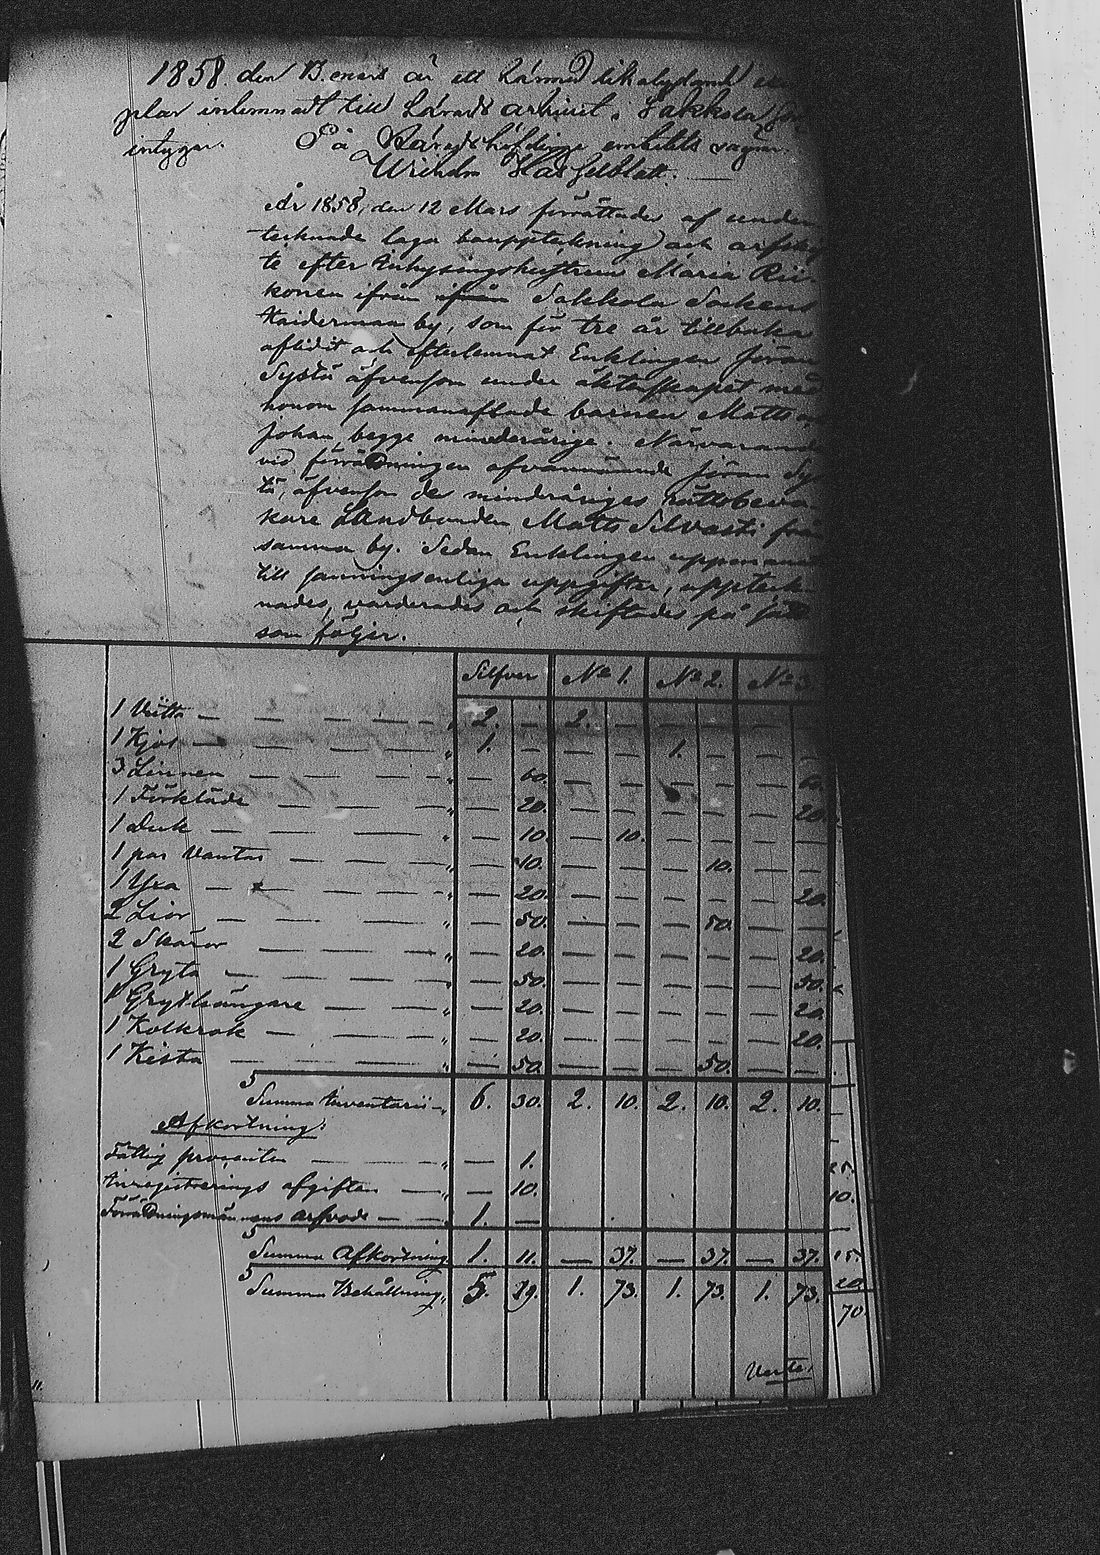 1858 den 13 mars är ett härmed lika lydande exem
plar inlemnadt till Härads arkivet, Sakkola
intygar. På Häradshöfdinge embetets vägnar.
Wilhelm Hasselblatt.
År 1858, den 12 Mars förrättades af under
tecknade laga bouppteckning och arfskif
te efter Inhysingshustrun Maria Rii
konen ifrån ifrån Sakkola Sockens
Haiderman by, som för tre år tillbaka
aflidit och efterlemnat Enklingen Jöran
Systä äfvensom under äktenskapet med
honom sammanaflade barnen Matts och
Johan, begge minderårige. Närvarande
vid förrättningen ofvannämnde Jöran Sy
tä, äfvensom de minderåriges rättsbeva
kare Landbonden Matts Silvasti från
samma by. Sedan Enklingen uppmanats
till sanningsenliga uppgifter, uppteck
nades, värderades och skiftades på sätt
som följer.
Silfver No 1. No 2. No 3.
1 Vitta — — — — " 2. — 2. — — — — —
1 Kjol — — — — " 1. — — — 1. — — —
3 Linnen — — — — " — 60. — — — — — 60.
1 Förkläde — — — " — 20. — — — — — 20.
1 Duk — — — — " — 10. — 10. — — — —
1 par Vantar — — — " — 10. — — — 10. — —
1 Yxa — — — — " — 20. — — — — — 20.
2 Liar — — — — " — 50. — — — 50. — —
2 Skäror — — — " — 20. — — — — — 20.
1 Gryta — — — — " — 50. — — — — — 50.
1 Grythängare — — — " — 20. — — — — — 20.
1 Kolkrok — — — " — 20. — — — — — 20.
1 Kista — — — — " — 50. — — — 50. — —
Summa Inventarii " 6. 30. 2. 10. 2. 10. 2. 10.
Afkortning:
Fattig procenten — — — " — 1.
Inregistrerings afgiften — " — 10.
Förrättningsmännens arfvode — — " 1. —
Summa Afkortning 1. 11. — 37. — 37. — 37.
Summa Behållning, 5. 19. 1. 73. 1. 73. 1. 73.
Verte.
25.
10.
15
20
70